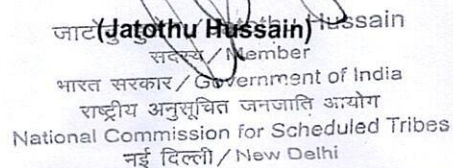 (Jatothu Hussain)
जाटोतु Hussain
सदस्य / Member
भारत सरकार / Government of India
राष्ट्रीय अनुसूचित जनजाति आयोग
National Commission for Scheduled Tribes
नई दिल्ली / New Delhi